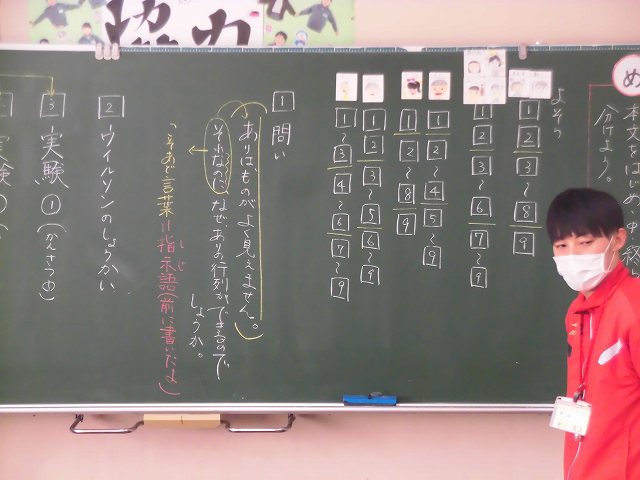 協力
め
本文をはじめ・中・終わ
分けよう。
よそう
1 2 3 〜 8 9
1 2 3 〜 6 7 〜 9
1 2 〜 4 5 〜 9
1 2 〜 8 9
1 2 3 〜 5 6 〜 9
1 〜 3 4 〜 6 7 〜 9
1 問い
ありは、ものがよく見えません。
それなのに、なぜ、ありの行列ができるので
しょうか。
こそあど言葉
=指示語(前に書いたよ)
しじ
2 ウイルソンのしょうかい
3 実験①(かんさつ中)
実験